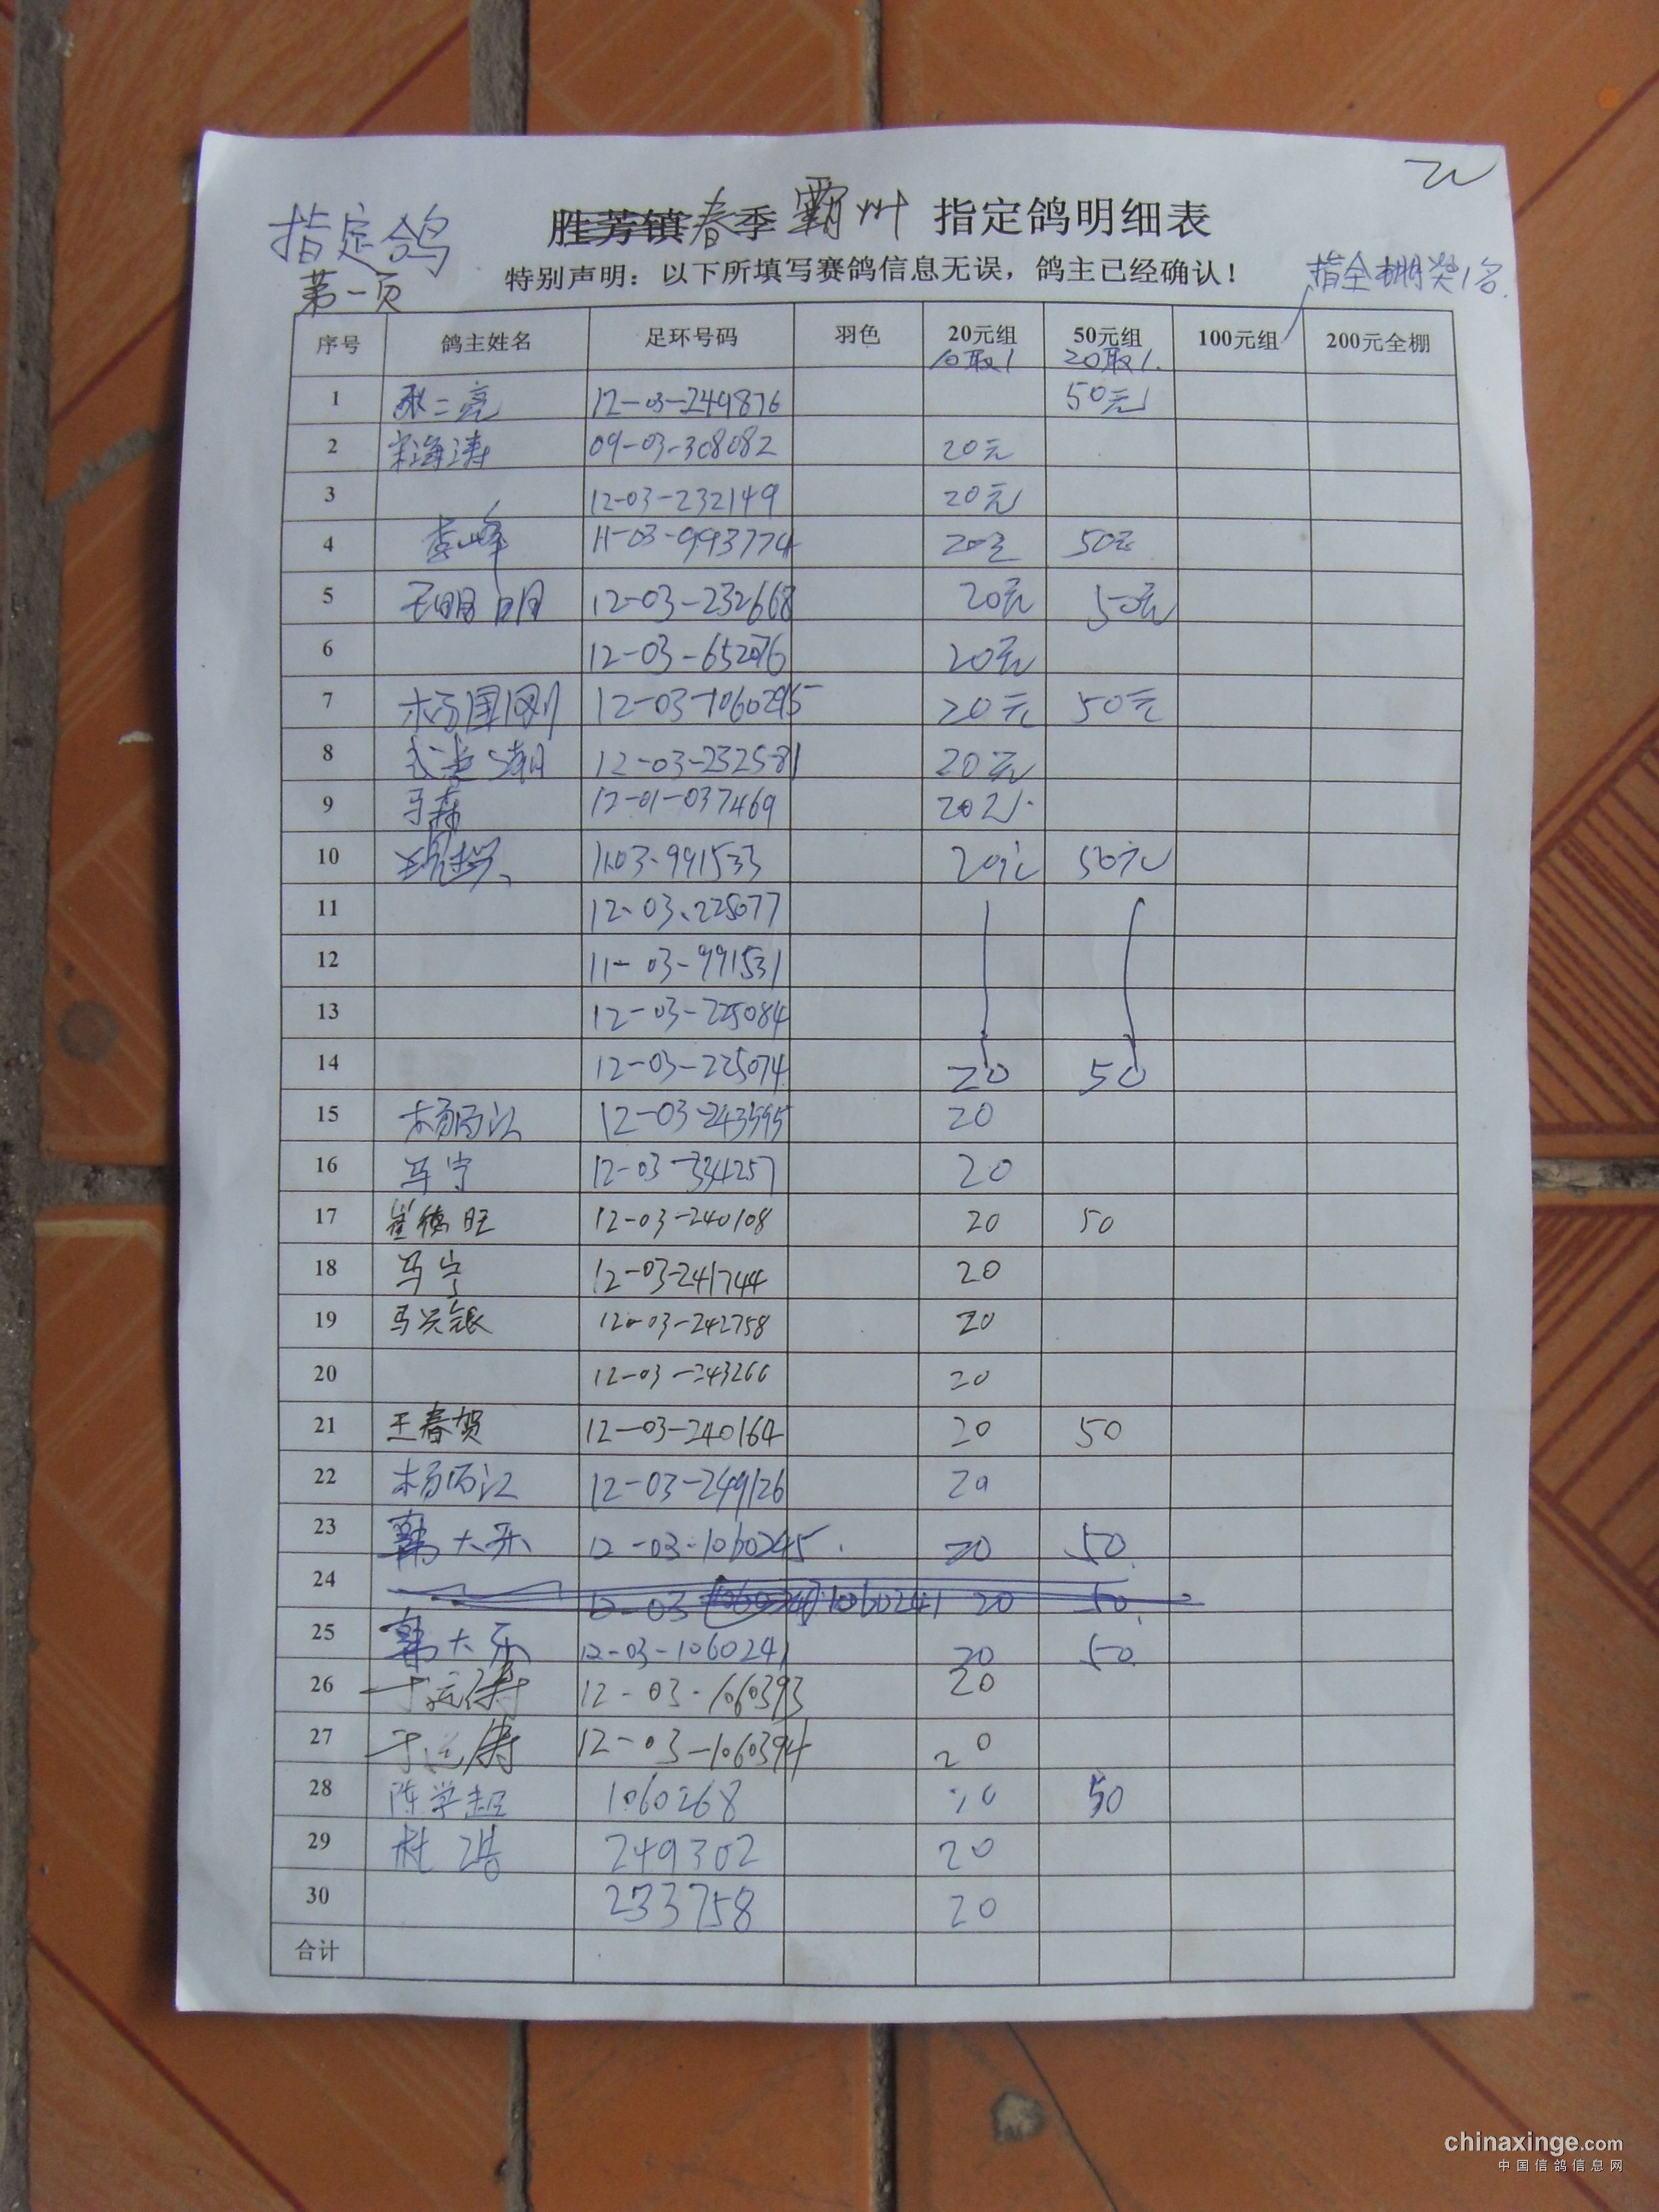 指定鸽
第一页
胜芳镇春季霸州 指定鸽明细表
特别声明：以下所填写赛鸽信息无误，鸽主已经确认！
指全棚奖1名.
序号 鸽主姓名 足环号码 羽色 20元组 50元组 100元组 200元全棚
10取1 20取1.
1 12-03-249876 50元
2 宋海涛 09-03-308082 20元
3 12-03-232149 20元
4 李峰 11-03-993774 20元 50元
5 12-03-232668 20元 50元
6 12-03-652076 20元
7 杨国刚 12-03-1060295 20元 50元
8 12-03-232581 20元
9 马森 12-01-037469 20元
10 11-03-991533 20元 50元
11 12-03-225077
12 11-03-991531
13 12-03-225084
14 12-03-225074 20 50
15 12-03-243595 20
16 马宁 12-03-334257 20
17 崔德旺 12-03-240108 20 50
18 马宁 12-03-241744 20
19 马兴银 12-03-242758 20
20 12-03-243266 20
21 王春贺 12-03-240164 20 50
22 12-03-249126 20
23 韩大乐 12-03-1060245 20 50
24 12-03 1060241 20 50
25 韩大乐 12-03-1060241 20 50
26 于运涛 12-03-1060393 20
27 于运涛 12-03-1060394 20
28 陈学超 1060268 20 50
29 249302 20
30 233758 20
合计
chinaxinge.com
中国信鸽信息网